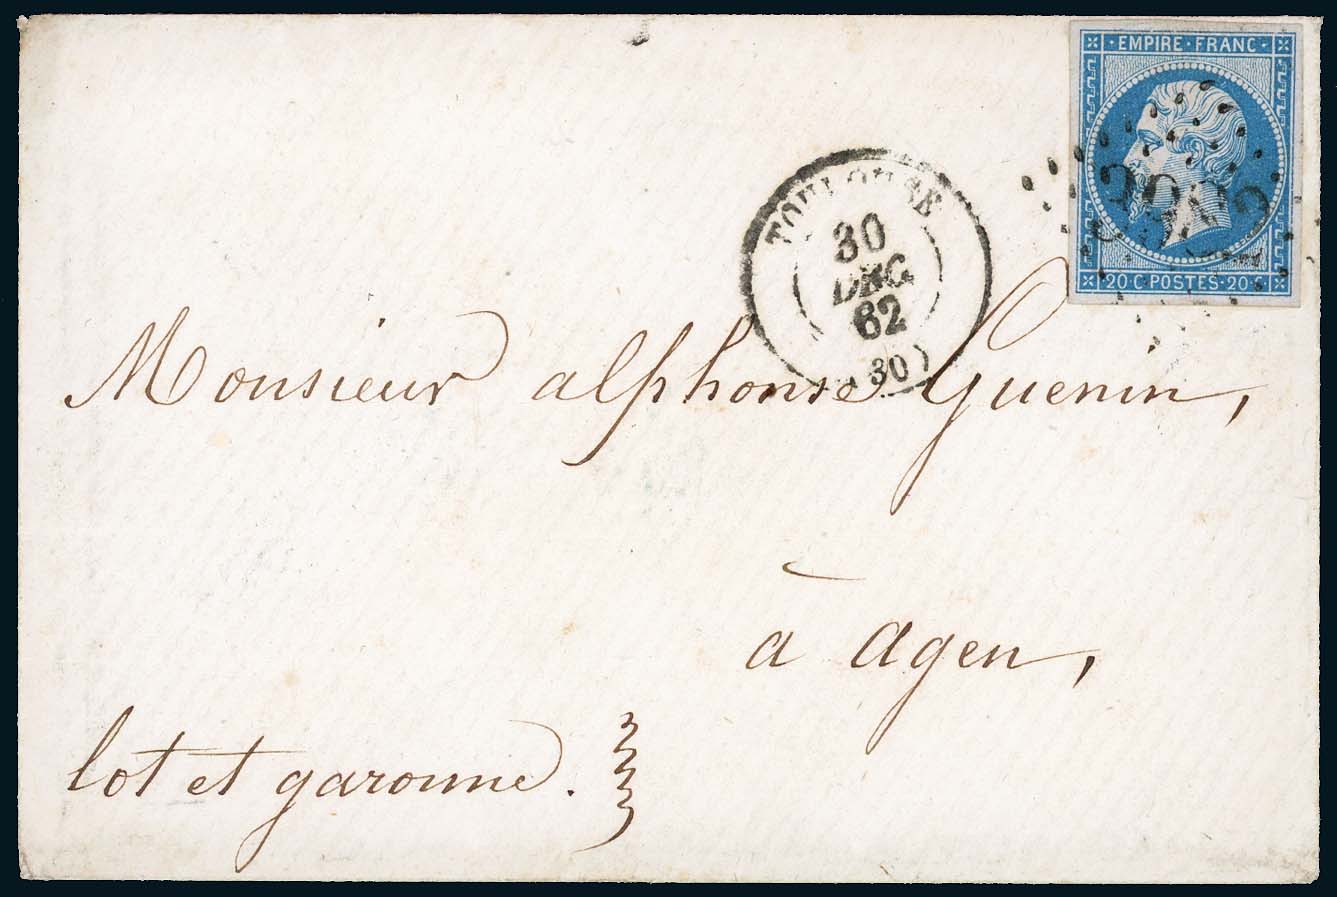 EMPIRE · FRANC ·
3982
20 C · POSTES · 20 C
TOULOUSE
30
DEC
62
(30)
Monsieur alphonse Guenin,
à agen,
lot et garonne.